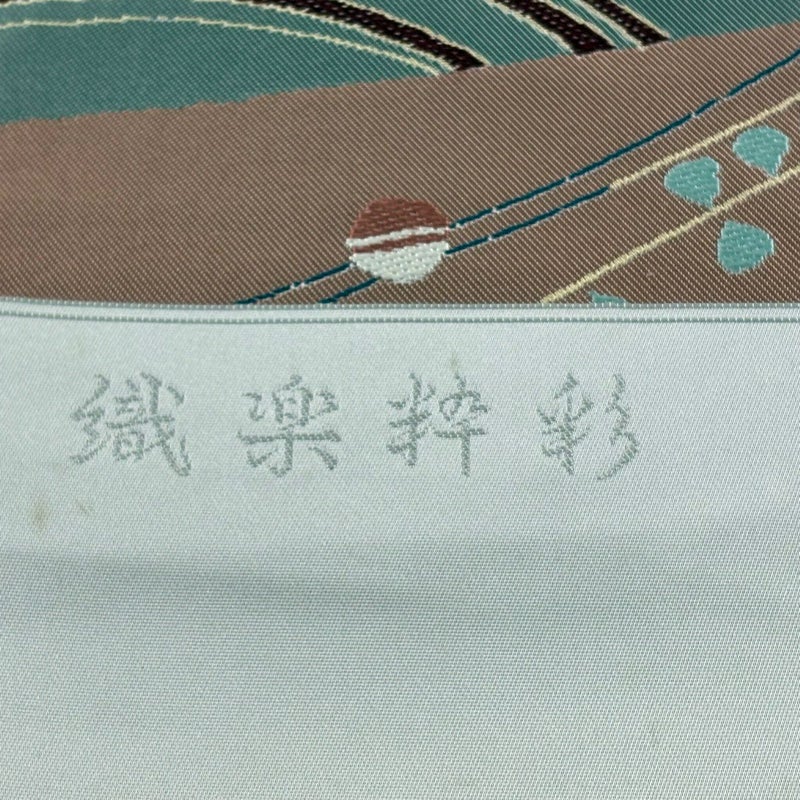 織楽粋彩